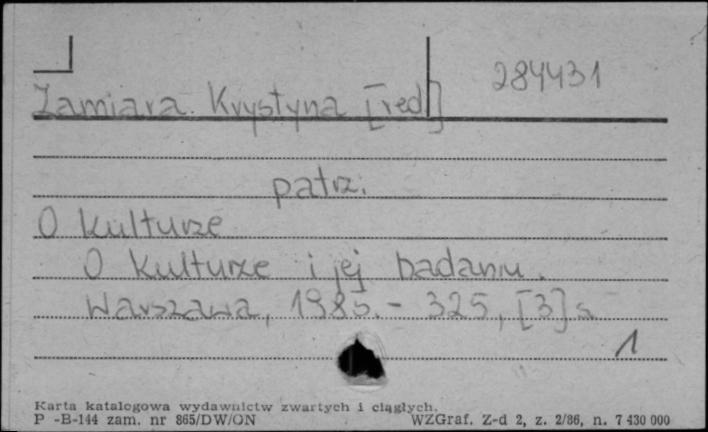 284431
Zamiara Krystyna [red]
patrz.
O kulturze
O kulturze i jej badaniu.
Warszawa, 1985. - 325, [3] s.
1
Karta katalogowa wydawnictw zwartych i ciągłych.
P -B-144 zam. nr 865/DW/ON WZGraf. Z-d 2, z. 2/86, n. 7 430 000